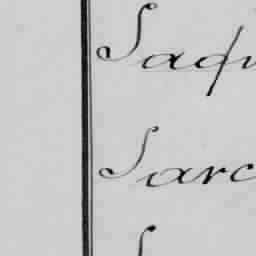 Saqu
Sarc
S